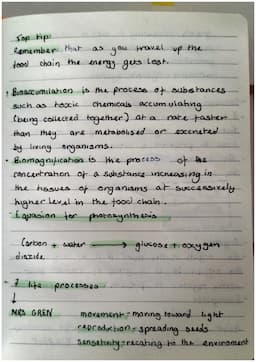 Top tip:
Remember that as you travel up the
food chain the energy gets lost.
Bioaccumilation is the process of substances
such as toxic chemicals accumulating
(being collected together) at a rate faster
than they are metabolised or excreted
by living organisms.
Biomagnification is the process of the
concentration of a substance increasing in
the tissues of organisms at successively
higher level in the food chain.
Equasion for photosynthesis
Carbon + water → glucose + oxygen
dioxide
7 life processes
↓
MRS GREN movement - moving toward light
reproduction - spreading seeds
sensitivity - reacting to the enviroment